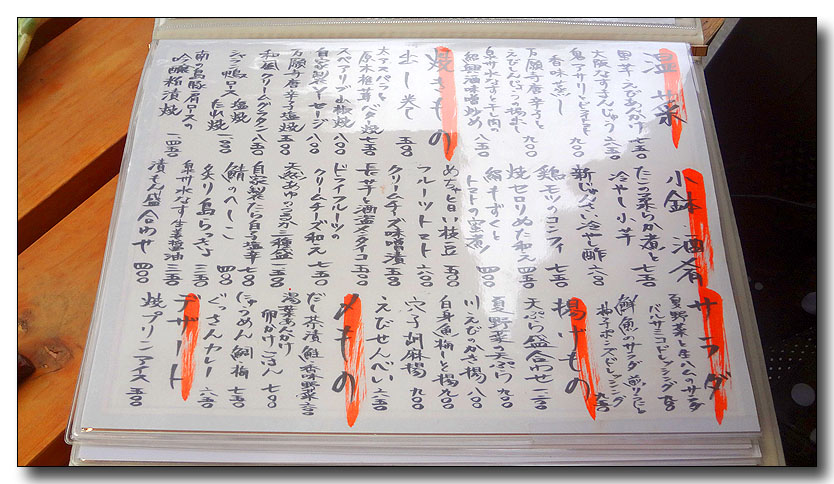 温菜
里芋えびあんかけ 七五〇
大阪なすまんじゅう 六五〇
鬼アサリとトマトの
香味蒸し 九〇〇
万願寺唐辛子と
えびしんじょうの揚出し 七五〇
泉州水なすと干し肉の
紹興酒味噌炒め 八五〇
焼きもの
出し巻き 五五〇
大アスパラと
原木椎茸バター焼 七五〇
スペアリブ山椒焼 八〇〇
自家製ソーセージ 八〇〇
万願寺唐辛子塩焼 五五〇
和風クリームグラタン 八五〇
シャラン鴨ロース 塩焼
たれ焼 一二〇〇
南の島豚肩ロースの
吟醸粕漬焼 一四五〇
小鉢・酒肴
たこの柔らか煮と
冷やし小芋 七五〇
新じゅんさい冷やし酢 六五〇
鶏モツのコンフィ 七五〇
焼セロリぬた和え 四五〇
絹もずくと
トマトの蜜煮 四〇〇
めちゃ旨い枝豆 五〇〇
フルーツトマト 六〇〇
クリームチーズ味噌漬 五五〇
長芋と酒盗メンタイコ 五五〇
ドライフルーツの
クリームチーズ和え 七五〇
天然あゆのうるか三種盛 五五〇
自家製たら子塩辛 七五〇
鯖のへしこ 四〇〇
炙り島らっきょ 三五〇
泉州水なす生姜醤油 三五〇
漬もん盛合わせ 四〇〇
サラダ
夏野菜と生ハムのサラダ
バルサミコドレッシング
鮮魚のサラダ仕立て
柚子ポンズドレッシング 九五〇
揚げもの
天ぷら盛合わせ 一二〇〇
夏野菜の天ぷら 九五〇
川えびのかき揚 八〇〇
白身魚梅しそ揚 九〇〇
穴子胡麻揚 九〇〇
えびせんべい 六五〇
〆もの
だし茶漬 鮭・香味野菜 六五〇
湯葉あんかけ
卵かけごはん 七〇〇
にゅうめん 鯛・梅 七五〇
ぐっさんカレー 六五〇
デザート
焼プリン アイス 三五〇